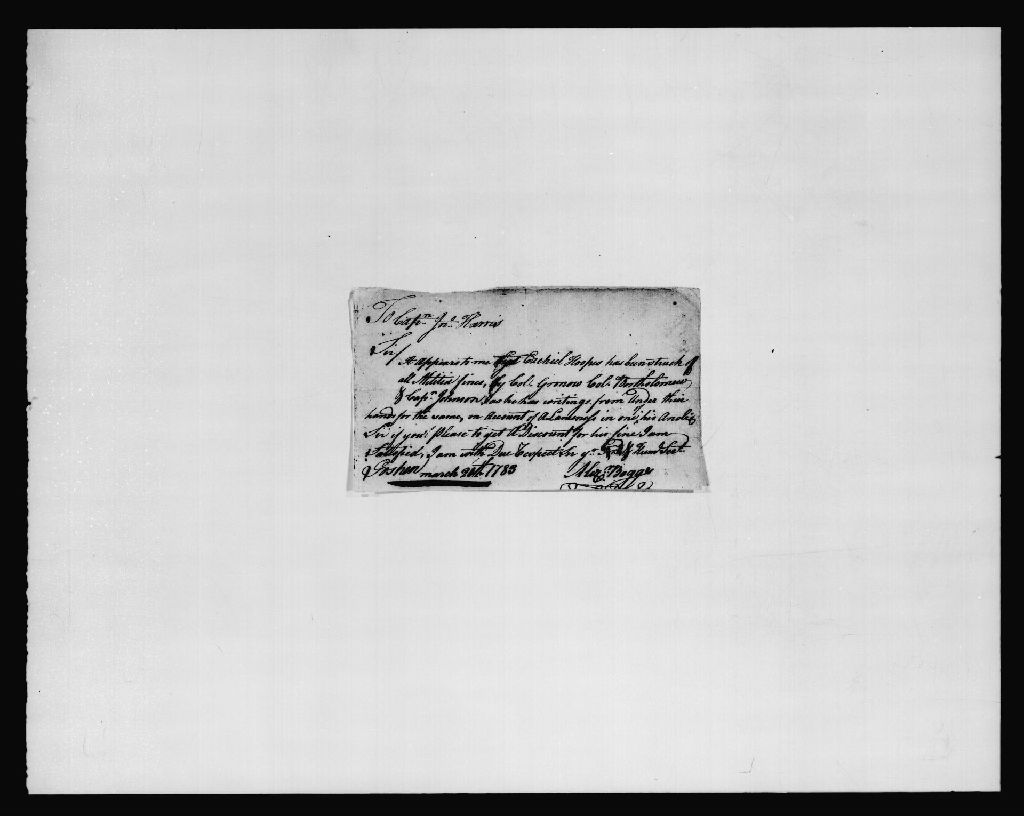 To Capn. Jno. Harris
Sir/
It Appears to me Ezekiel Hoopes has been struck off
all Militia fines, by Col. Gronow Col. Bartholomew
& Capn. Johnson as he has writings, from under their
hands for the same, on Account of A Lameness in one of his Ancles
Sir if you Please to get A Discount for his fine I am
Sattisfied, I am with Due Respect Sr. yr. Frd. & Humbl
Goshen march 1783 Alexr. Boggs